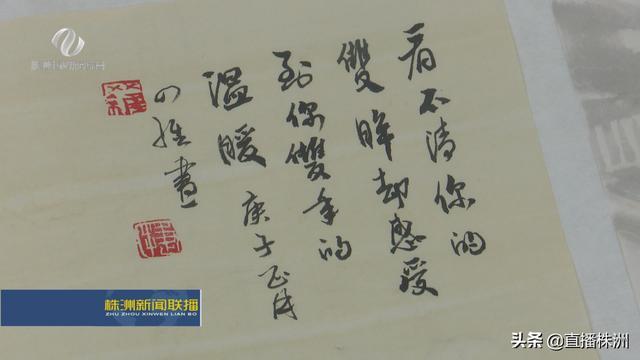 看不清你的
雙眸却感受
到你雙手的
溫暖 庚子正月
畫
株洲新闻联播
ZHU ZHOU XINWEN LIAN BO
头条 @直播株洲